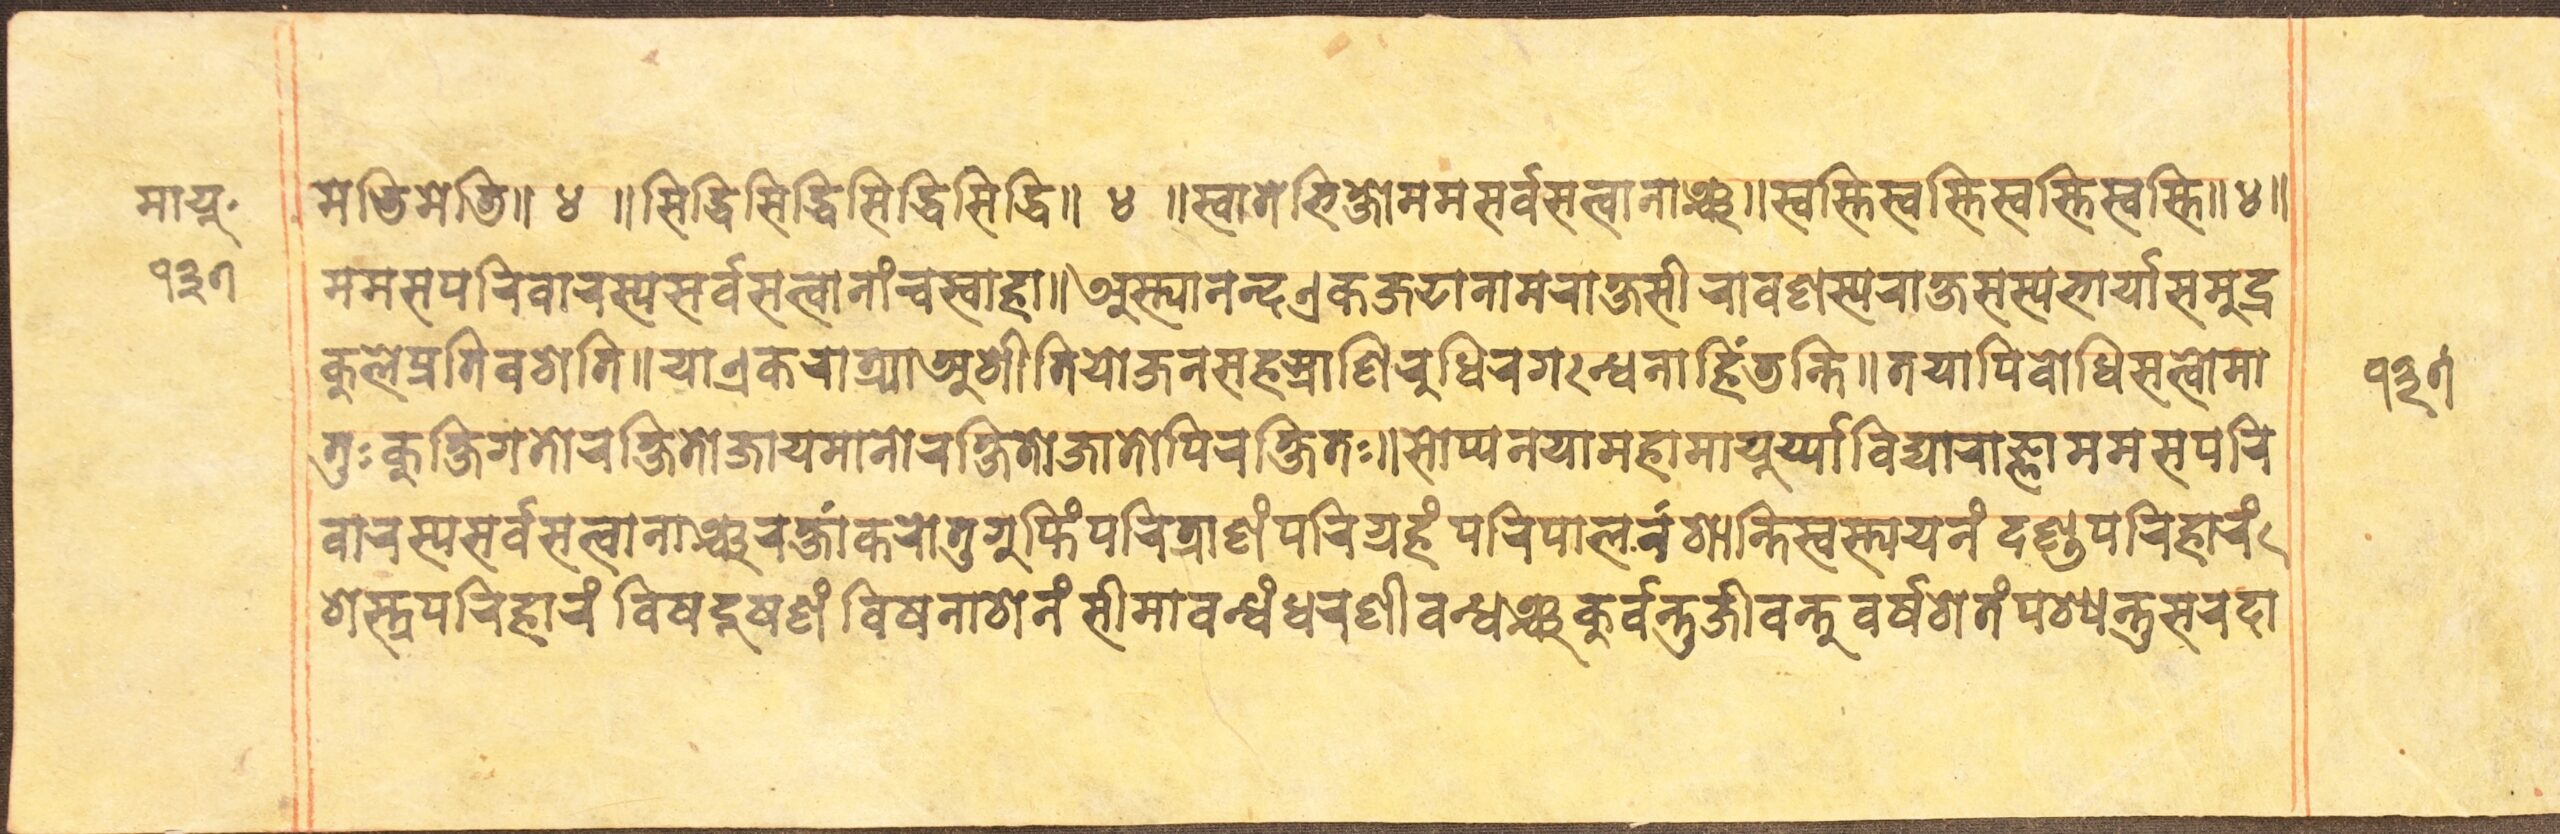 मायु॰
१३७
मेडिमेडि॥ ४ ॥सिद्धिसिद्धिसिद्धिसिद्धि॥ ४ ॥स्वातेहिक्षोममसर्वसत्वानाञ्च॥स्वस्तिस्वस्तिस्वस्तिस्वस्ति॥४॥
ममसपरिवारस्यसर्वसत्वोनांचस्वाहा॥अस्त्यानन्दएकजटानामराक्षसी रावणस्यराक्षसस्यभार्यासमुद्र
कुलेप्रतिवशति॥याएकरात्र्याअशीतियोजनसहस्राणिरुधिरगन्धनाहिंडन्ति॥तयापिबोधिसत्वोमा
तुःकुक्षिगतोरक्षितोजायमानोरक्षितोजातोपिरक्षितः॥सोप्यनयामहामायुर्य्याविद्याराज्ञाममसपरि
वारस्यसर्वसत्वानाञ्चरक्षांकरोतुगुप्तिंपरित्राणंपरिग्रहंपरिपालनंशान्तिस्वस्त्ययनं दण्डपरिहारं
शस्त्रपरिहारं विषदूषणं विषनाशनं सीमाबन्धंधरणीबन्धञ्चकुर्वन्तुजीवन्तुवर्षशतंपश्यन्तुसरदा
१३७